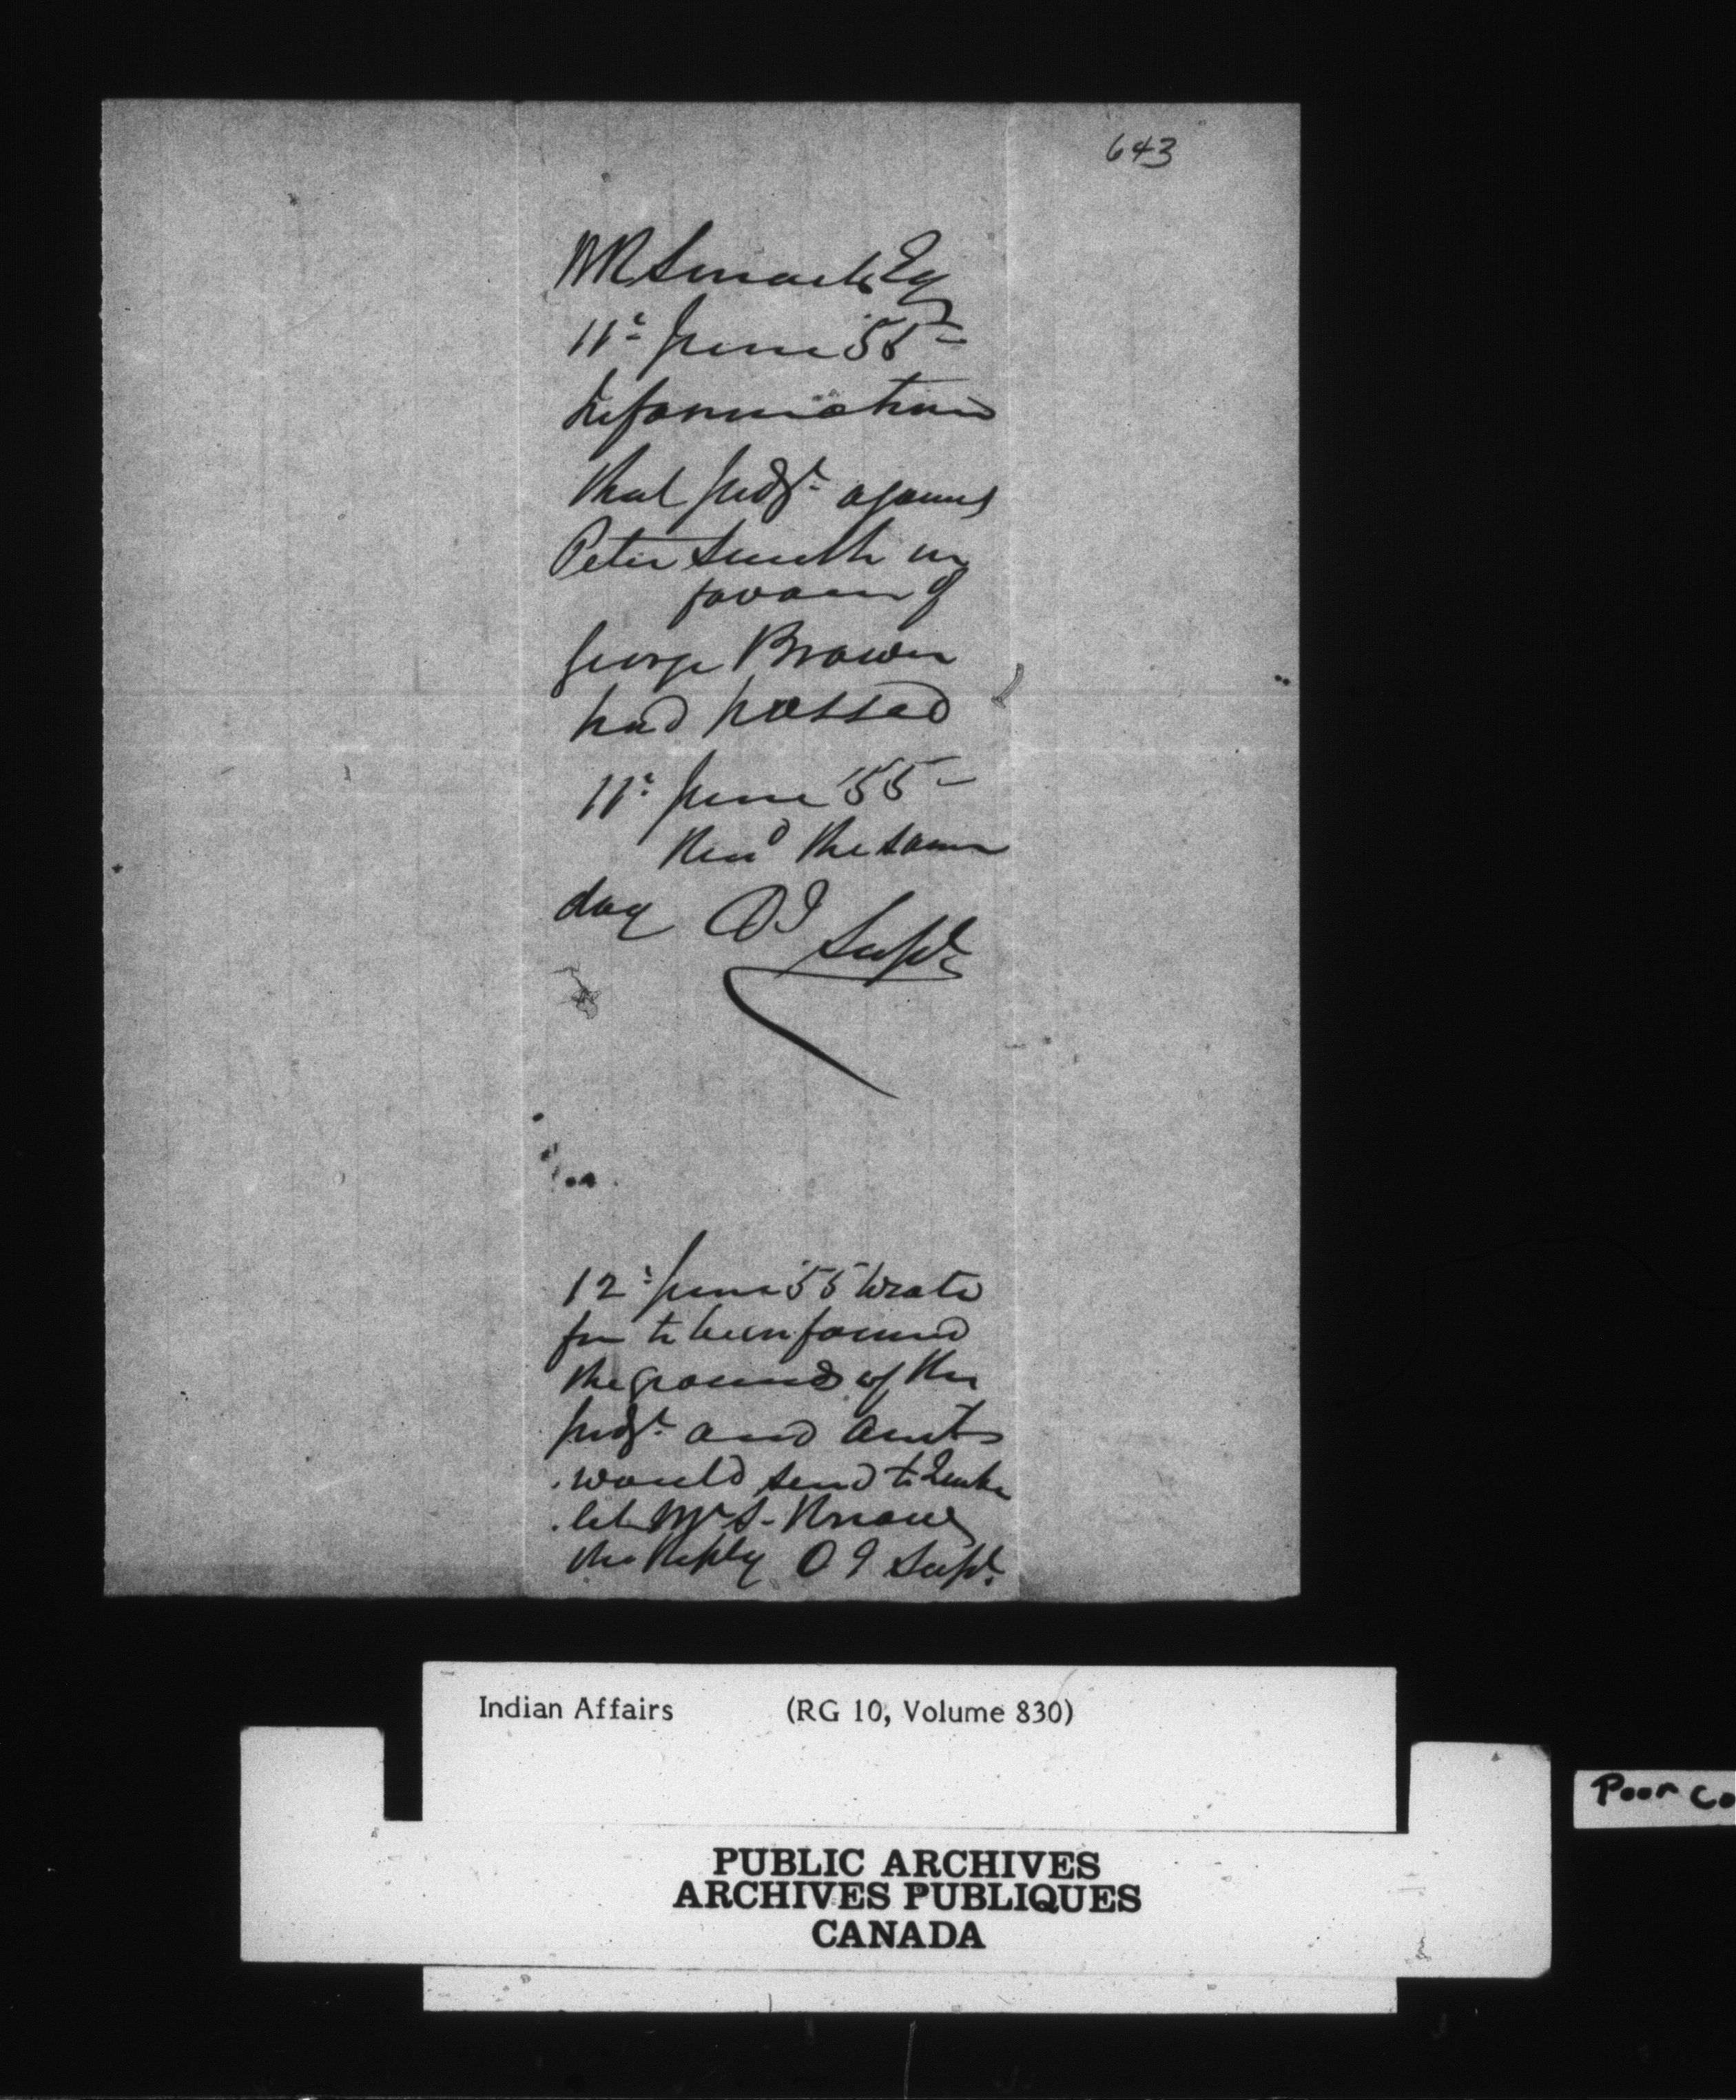 643
WR Smart Esq
11th June '55
Information
that Judgt against
Peter Smith in
favour of
George Brown
had passed
11th June '55
Recd the same
day DT Supt
12th June '55 wrote
for to be informed
the grounds of the
Judgt and Amt
would send to
let Mr S. Know
the Reply DT Supt.
Indian Affairs (RG 10, Volume 830)
PUBLIC ARCHIVES
ARCHIVES PUBLIQUES
CANADA
Poor Co